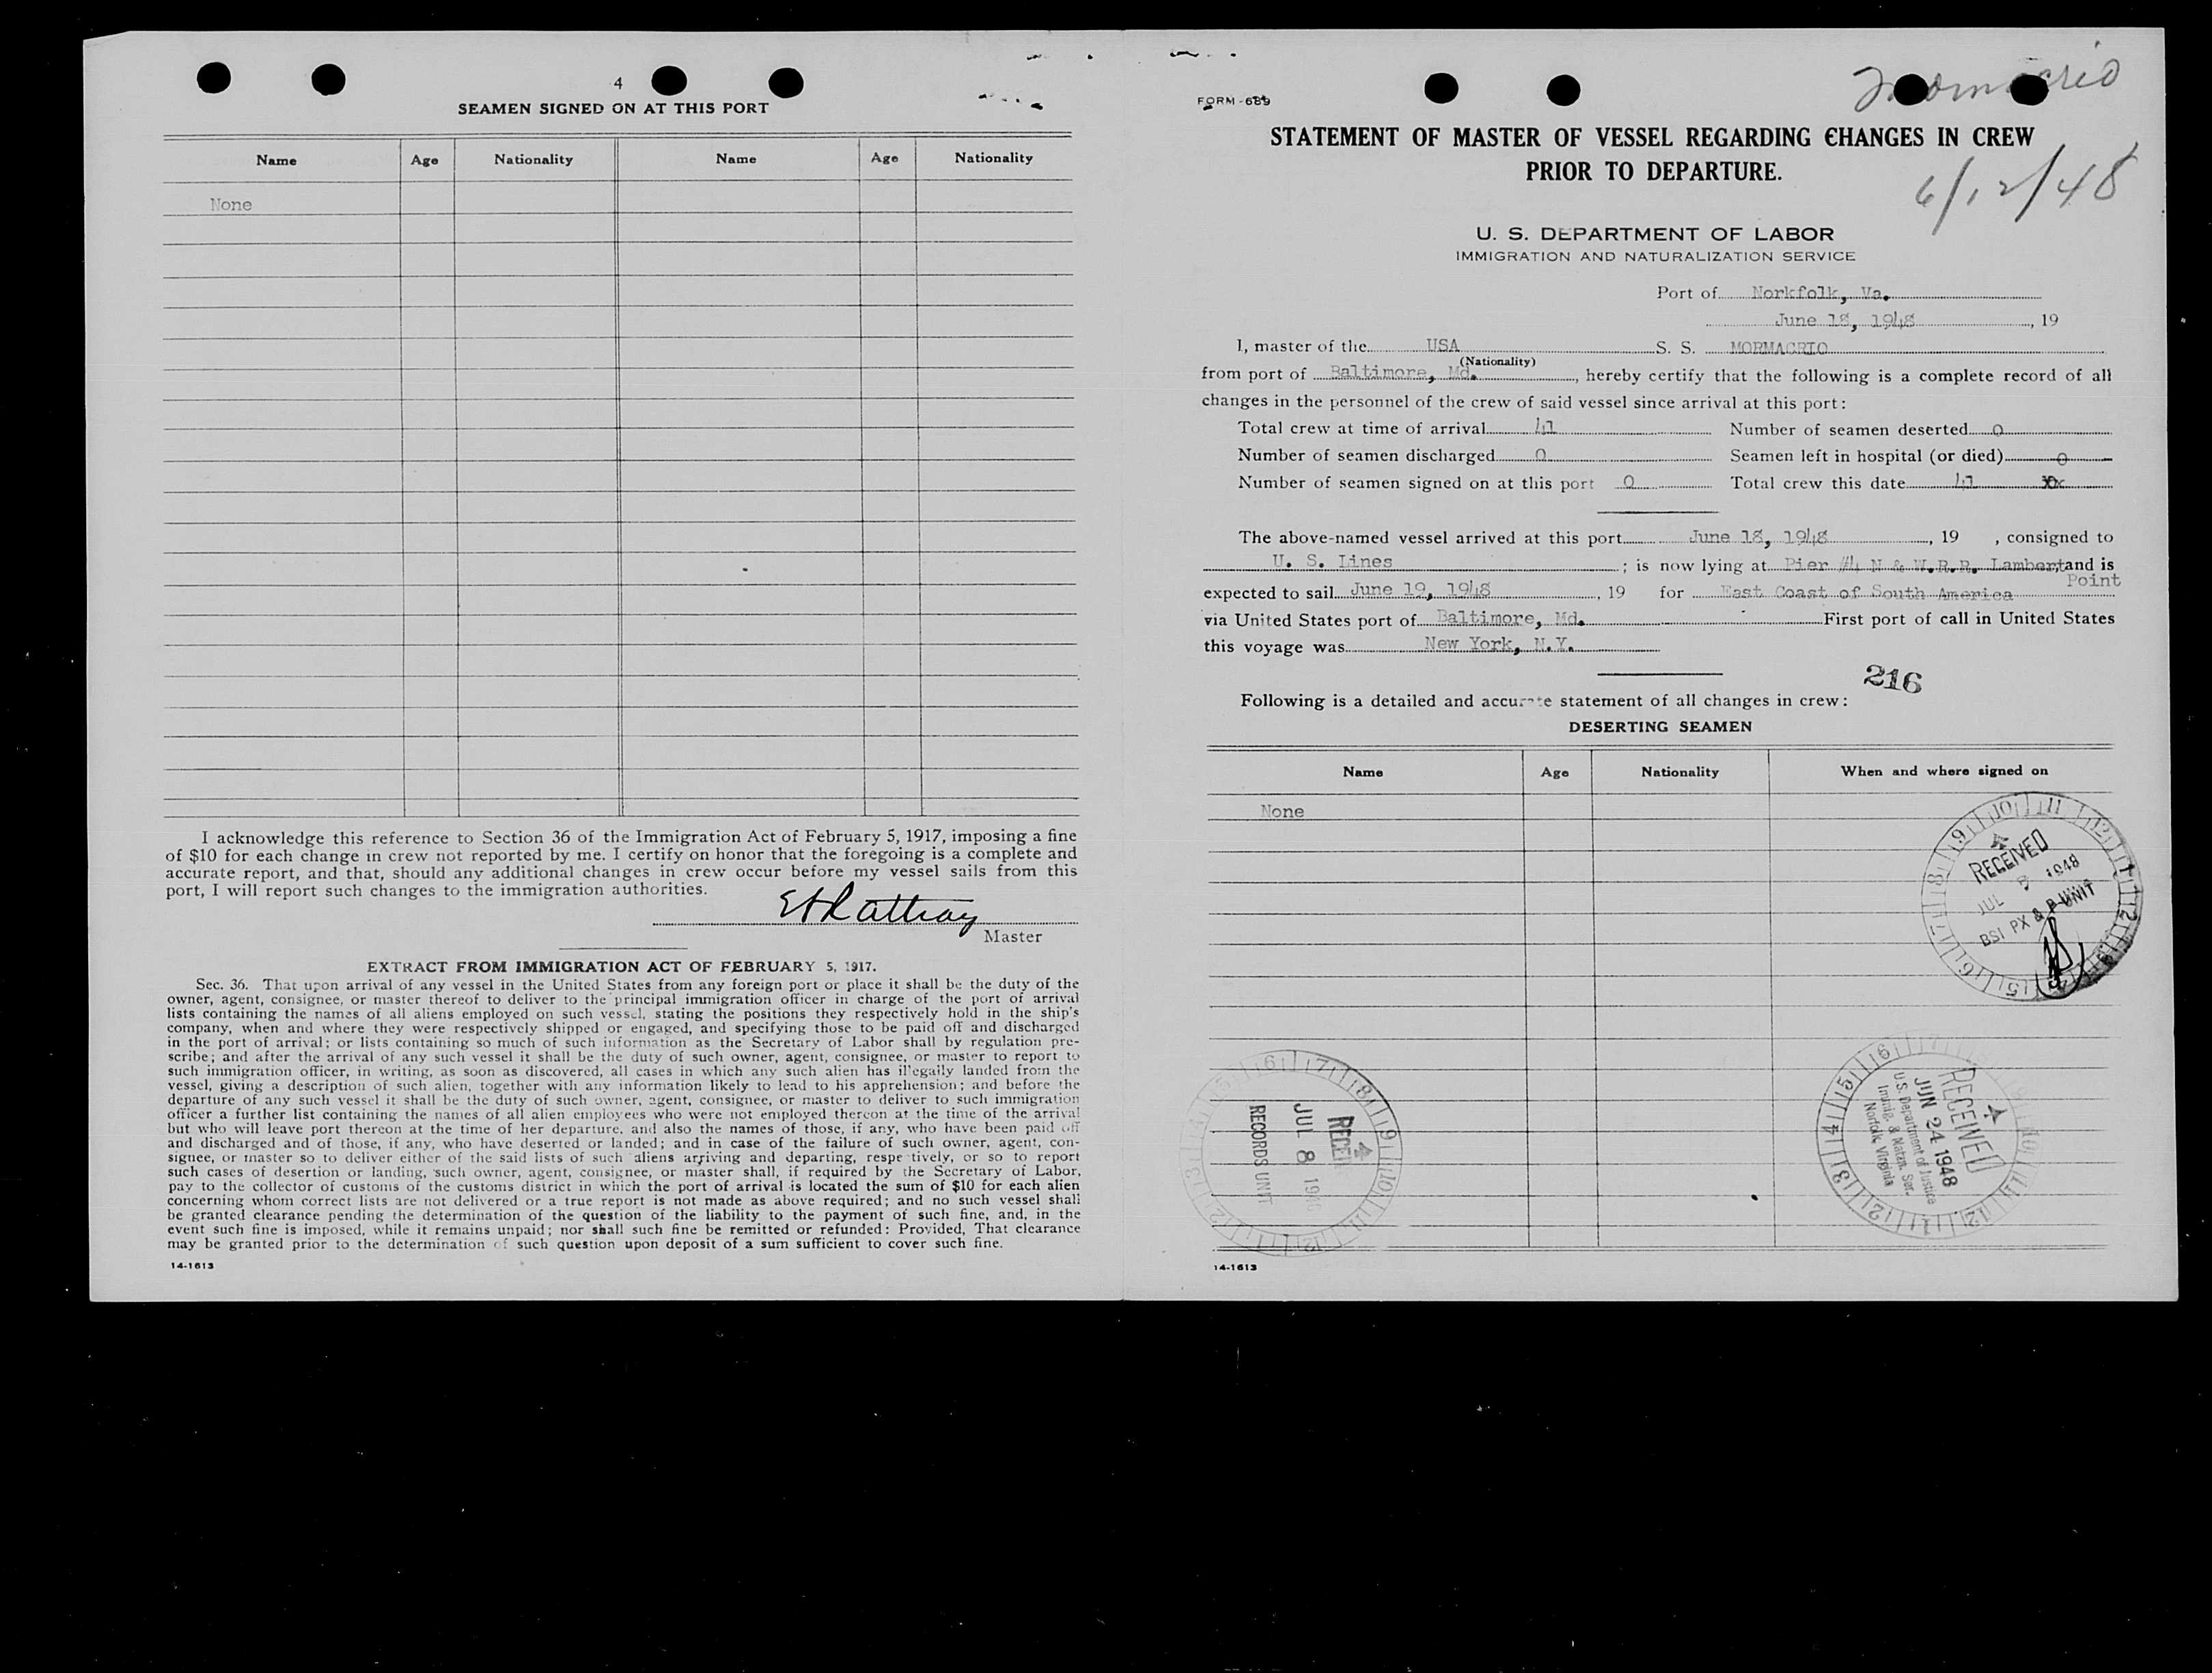 4
SEAMEN SIGNED ON AT THIS PORT
Name Age Nationality Name Age Nationality
None
I acknowledge this reference to Section 36 of the Immigration Act of February 5, 1917, imposing a fine
of $10 for each change in crew not reported by me. I certify on honor that the foregoing is a complete and
accurate report, and that, should any additional changes in crew occur before my vessel sails from this
port, I will report such changes to the immigration authorities.
Master
EXTRACT FROM IMMIGRATION ACT OF FEBRUARY 5, 1917.
Sec. 36. That upon arrival of any vessel in the United States from any foreign port or place it shall be the duty of the
owner, agent, consignee, or master thereof to deliver to the principal immigration officer in charge of the port of arrival
lists containing the names of all aliens employed on such vessel, stating the positions they respectively hold in the ship's
company, when and where they were respectively shipped or engaged, and specifying those to be paid off and discharged
in the port of arrival; or lists containing so much of such information as the Secretary of Labor shall by regulation pre-
scribe; and after the arrival of any such vessel it shall be the duty of such owner, agent, consignee, or master to report to
such immigration officer, in writing, as soon as discovered, all cases in which any such alien has illegally landed from the
vessel, giving a description of such alien, together with any information likely to lead to his apprehension; and before the
departure of any such vessel it shall be the duty of such owner, agent, consignee, or master to deliver to such immigration
officer a further list containing the names of all alien employees who were not employed thereon at the time of the arrival
but who will leave port thereon at the time of her departure, and also the names of those, if any, who have been paid off
and discharged and of those, if any, who have deserted or landed; and in case of the failure of such owner, agent, con-
signee, or master so to deliver either of the said lists of such aliens arriving and departing, respectively, or so to report
such cases of desertion or landing, such owner, agent, consignee, or master shall, if required by the Secretary of Labor,
pay to the collector of customs of the customs district in which the port of arrival is located the sum of $10 for each alien
concerning whom correct lists are not delivered or a true report is not made as above required; and no such vessel shall
be granted clearance pending the determination of the question of the liability to the payment of such fine, and, in the
event such fine is imposed, while it remains unpaid; nor shall such fine be remitted or refunded: Provided, That clearance
may be granted prior to the determination of such question upon deposit of a sum sufficient to cover such fine.
14-1613
FORM-689
STATEMENT OF MASTER OF VESSEL REGARDING CHANGES IN CREW
PRIOR TO DEPARTURE.
6/12/48
U. S. DEPARTMENT OF LABOR
IMMIGRATION AND NATURALIZATION SERVICE
Port of Norkfolk, Va.
June 18, 1948, 19
I, master of the USA S. S. MORMACRIO
(Nationality)
from port of Baltimore, Md., hereby certify that the following is a complete record of all
changes in the personnel of the crew of said vessel since arrival at this port:
Total crew at time of arrival 41 Number of seamen deserted 0
Number of seamen discharged 0 Seamen left in hospital (or died) 0
Number of seamen signed on at this port 0 Total crew this date 41 xx
The above-named vessel arrived at this port June 18, 1948, 19 , consigned to
U. S. Lines ; is now lying at Pier #4 N & W.R.R. Lambert and is
Point
expected to sail June 19, 1948, 19 for East Coast of South America
via United States port of Baltimore, Md. First port of call in United States
this voyage was New York, N.Y.
216
Following is a detailed and accurate statement of all changes in crew:
DESERTING SEAMEN
Name Age Nationality When and where signed on
None
RECEIVED
JUL 1948
BSI PX & P UNIT
JUL 8
RECORDS UNIT
RECEIVED
JUN 24 1948
U.S. Department of Justice
Immig. & Natzn. Ser.
Norfolk, Virginia
14-1613